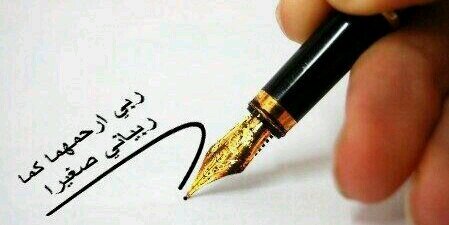 ربي ارحمهما كما
ربياني صغيرا